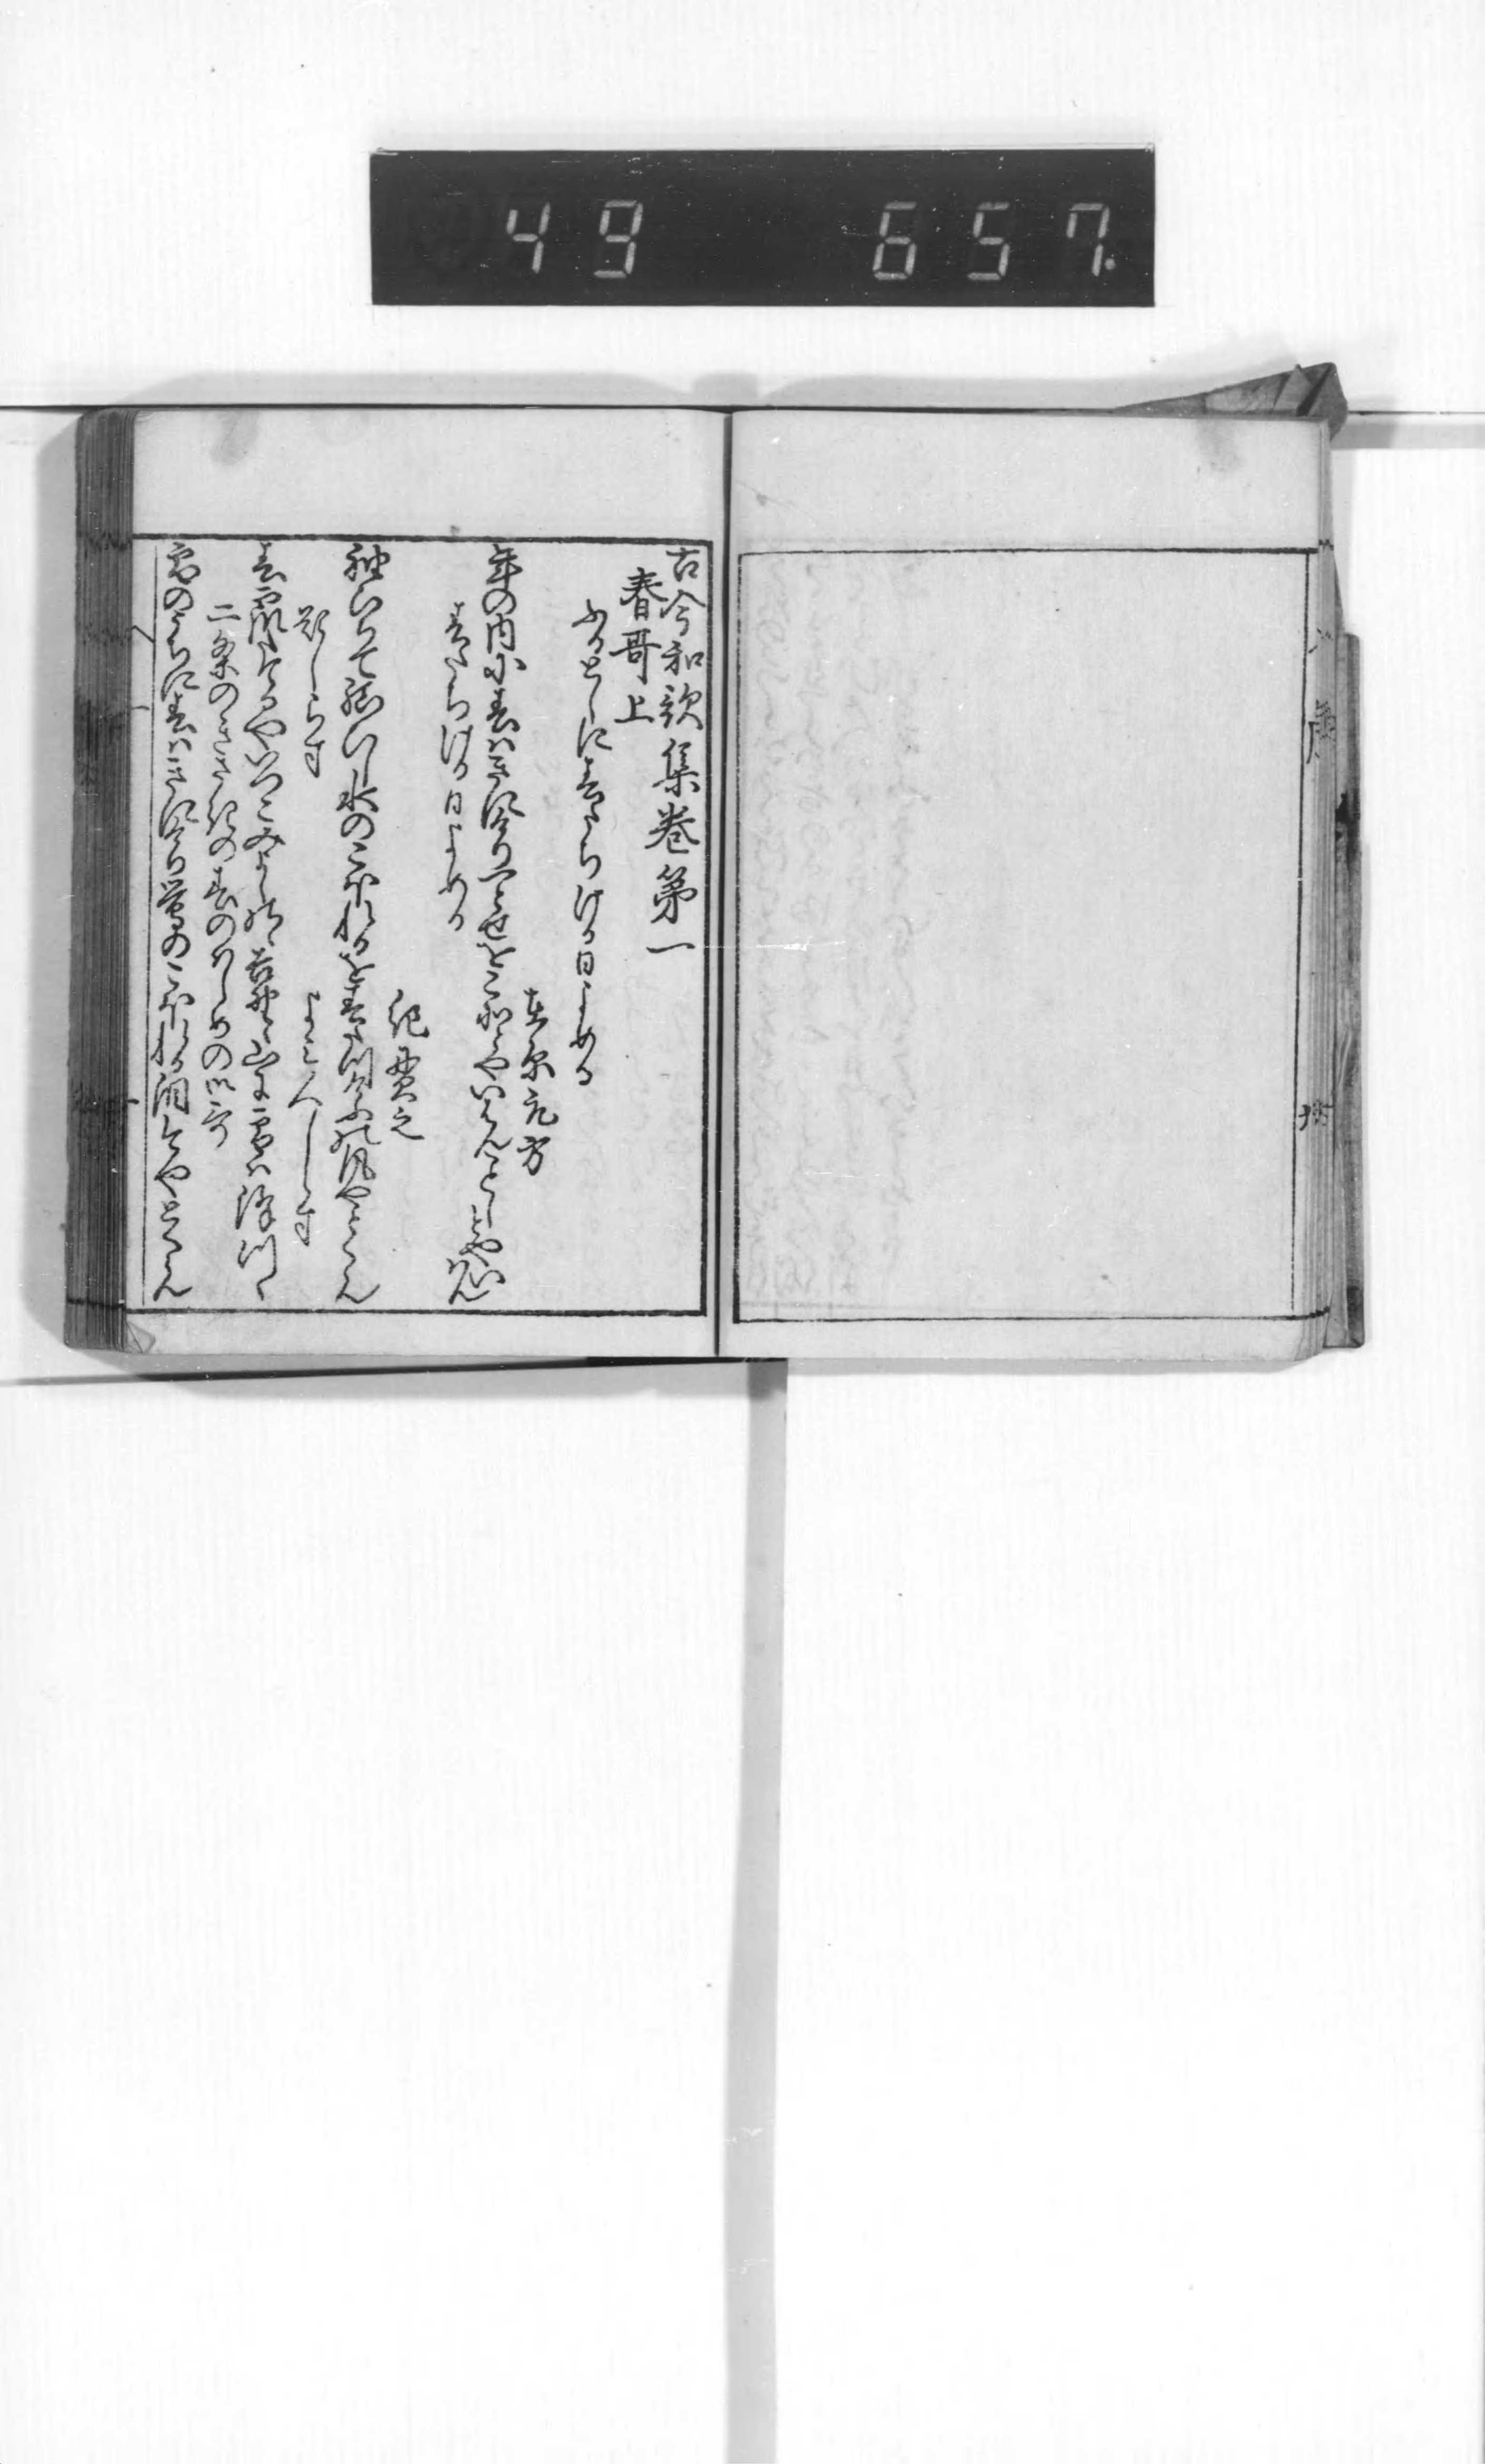 49 657.
古今和歌集巻第一
春哥上
ふるとしに春たちける日よめる
在原元方
年の内に春はきにけり一とせをこそとやいはんことしとやい
はん
春たちける日よめる
紀貫之
袖ひちて結ひし水のこほれるを春立けふの風やとくらん
題しらす
よみ人しらす
春霞たてるやいつこみよしのゝ吉野ゝ山に雪は降つゝ
二条のきさきの春のはしめの御哥
雪のうちに春はきにけり鶯のこほれる泪今やとくらん